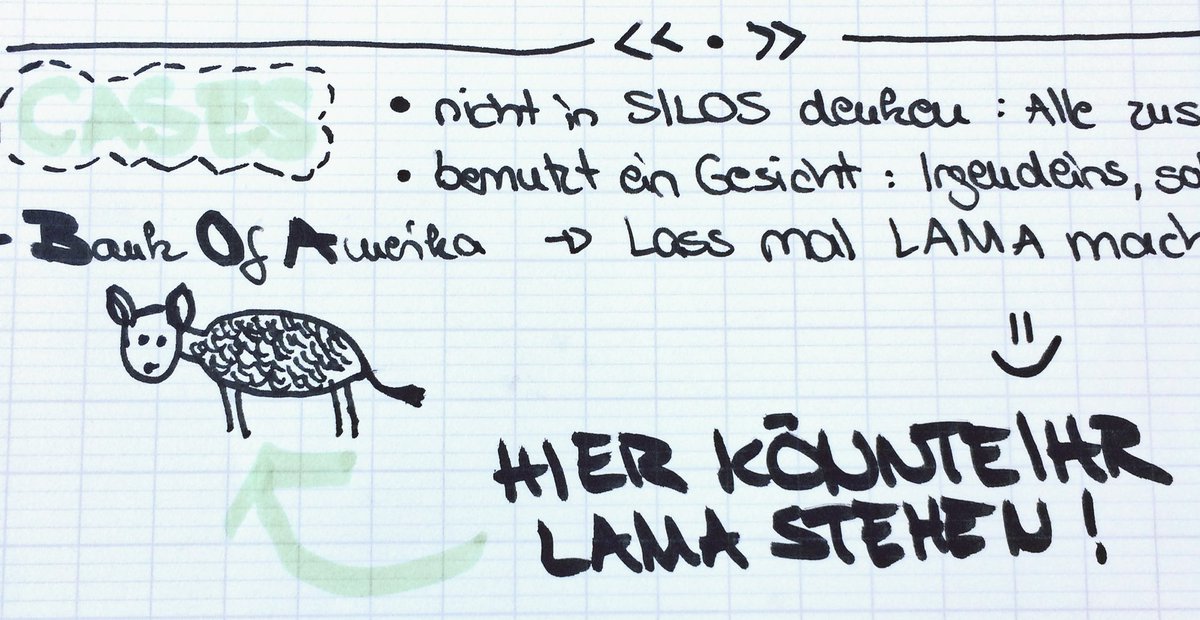 << • >>
CASES
• nicht in SILOS denken : Alle zus
• bemutzt ein Gesicht : Irgendeins, so
- Bank Of Amerika → Lass mal LAMA mach
HIER KÖNNTE IHR
LAMA STEHEN!